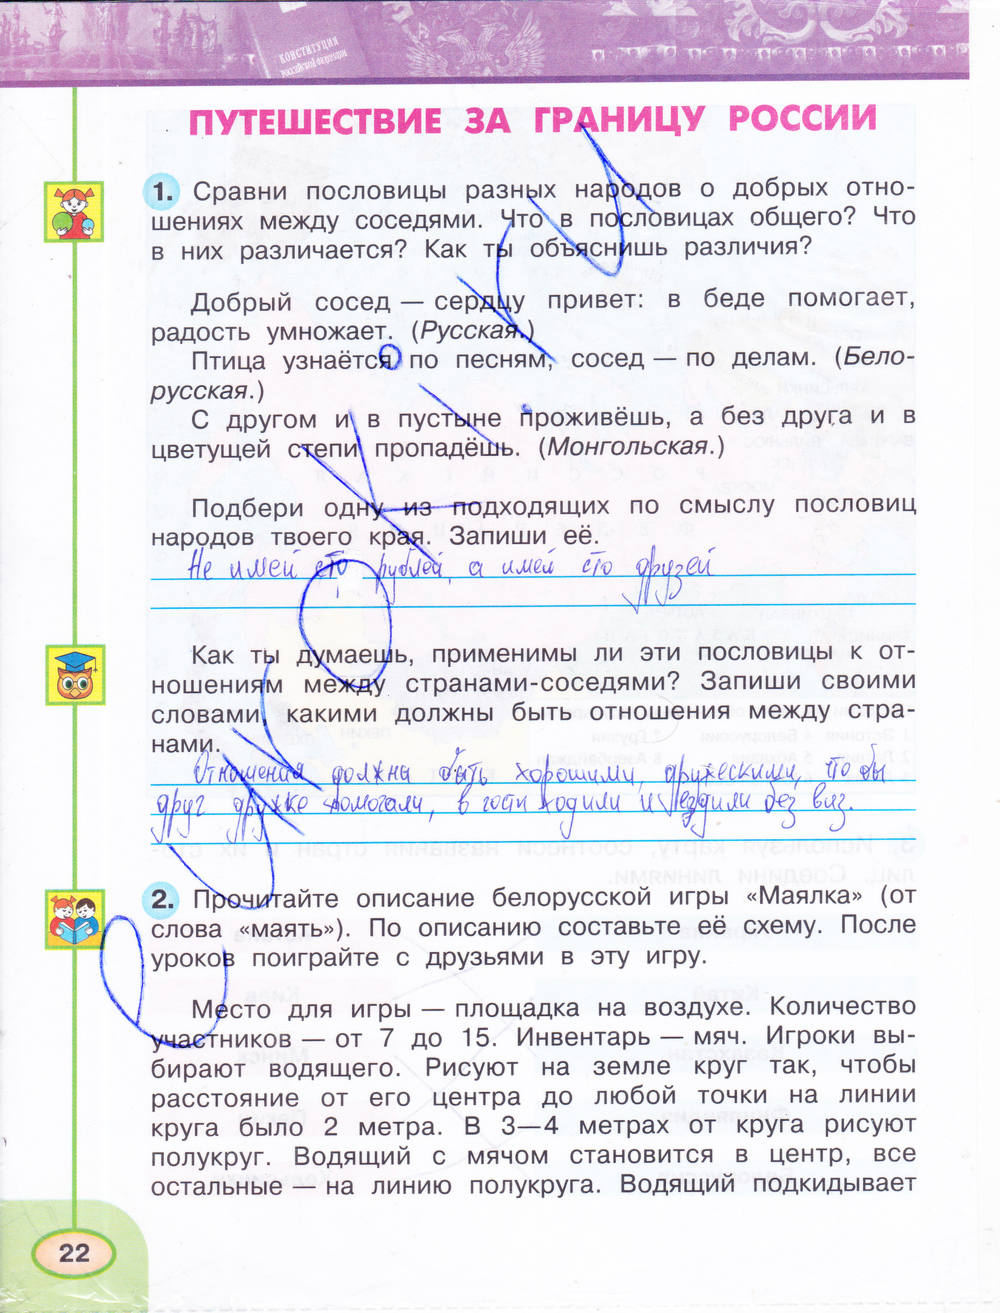 КОНСТИТУЦИЯ
РОССИЙСКОЙ ФЕДЕРАЦИИ
ПУТЕШЕСТВИЕ ЗА ГРАНИЦУ РОССИИ
1. Сравни пословицы разных народов о добрых отно-
шениях между соседями. Что в пословицах общего? Что
в них различается? Как ты объяснишь различия?
Добрый сосед — сердцу привет: в беде помогает,
радость умножает. (Русская.)
Птица узнаётся по песням, сосед — по делам. (Бело-
русская.)
С другом и в пустыне проживёшь, а без друга и в
цветущей степи пропадёшь. (Монгольская.)
Подбери одну из подходящих по смыслу пословиц
народов твоего края. Запиши её.
Не имей сто рублей, а имей сто друзей
Как ты думаешь, применимы ли эти пословицы к от-
ношениям между странами-соседями? Запиши своими
словами, какими должны быть отношения между стра-
нами.
Отношения должна быть хорошими, дружескими, что бы
друг дружке помогали, в гости ходили и ездили без виз.
2. Прочитайте описание белорусской игры «Маялка» (от
слова «маять»). По описанию составьте её схему. После
уроков поиграйте с друзьями в эту игру.
Место для игры — площадка на воздухе. Количество
участников — от 7 до 15. Инвентарь — мяч. Игроки вы-
бирают водящего. Рисуют на земле круг так, чтобы
расстояние от его центра до любой точки на линии
круга было 2 метра. В 3—4 метрах от круга рисуют
полукруг. Водящий с мячом становится в центр, все
остальные — на линию полукруга. Водящий подкидывает
22